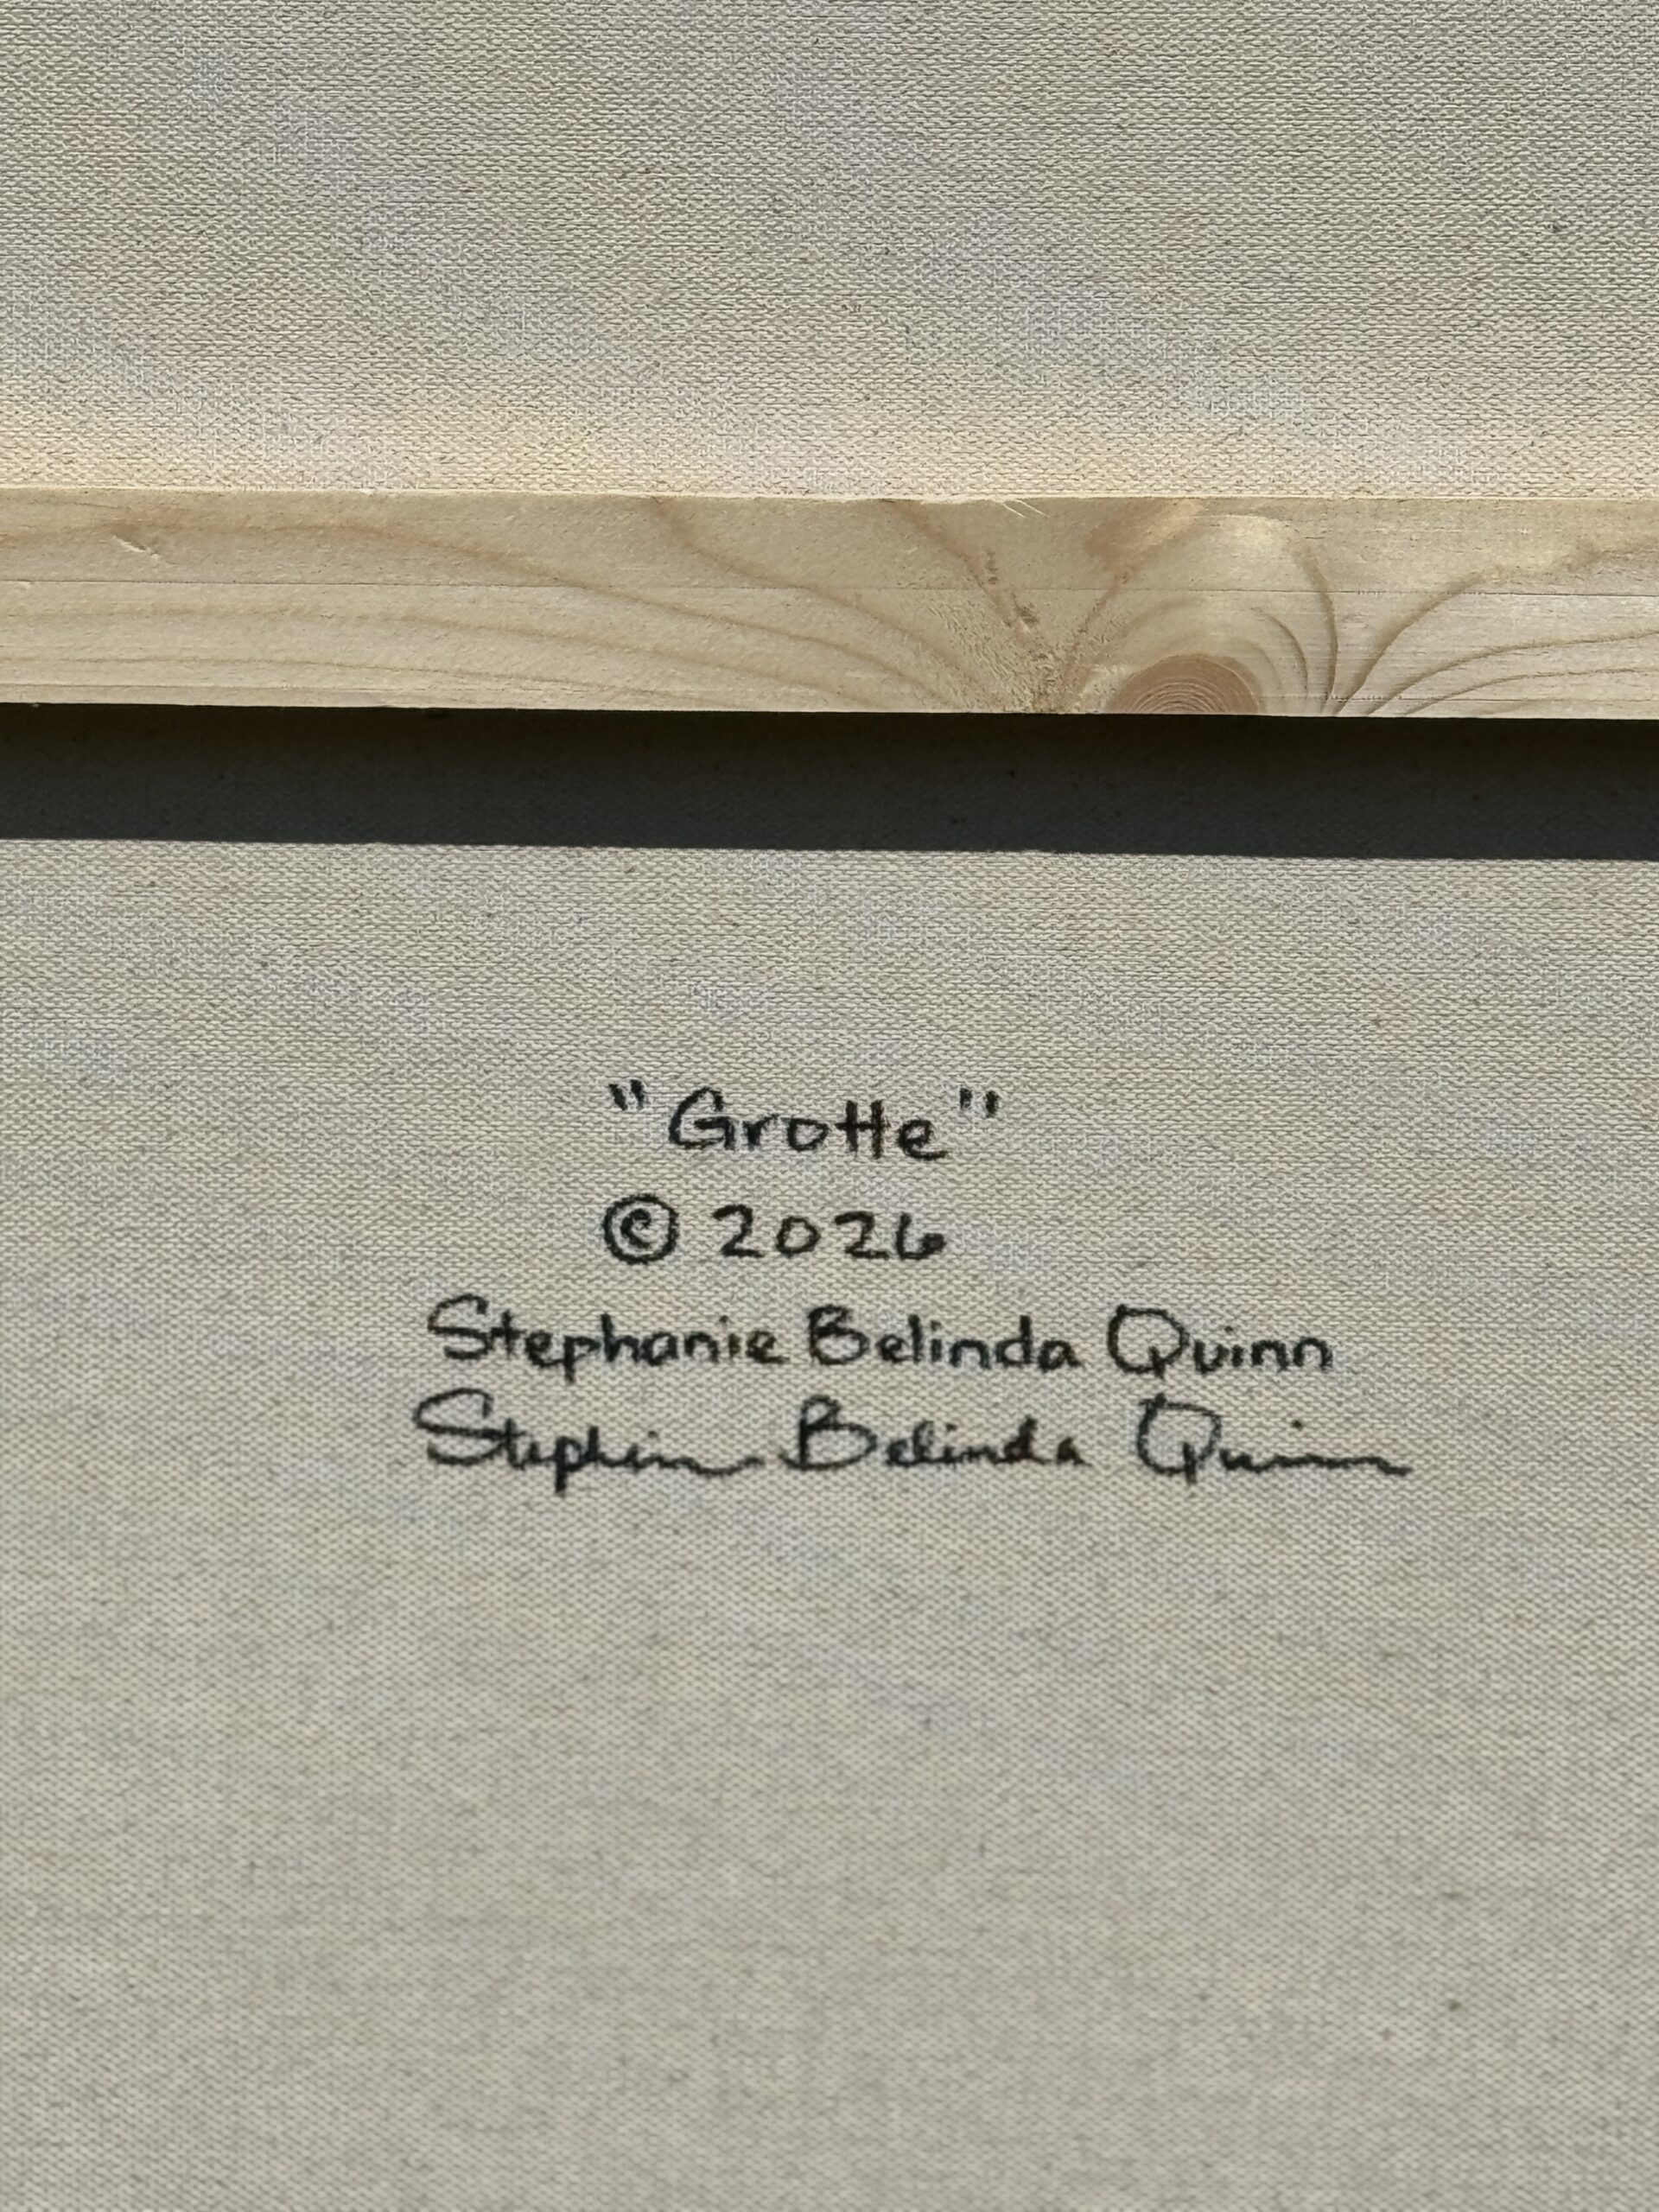 "Grotte"
© 2026
Stephanie Belinda Quinn
Stephanie Belinda Quinn